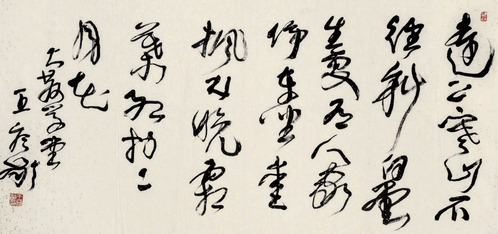 遠上寒山石
徑斜白雲
生處有人家
停車坐愛
楓林晚霜
葉紅於二
月花